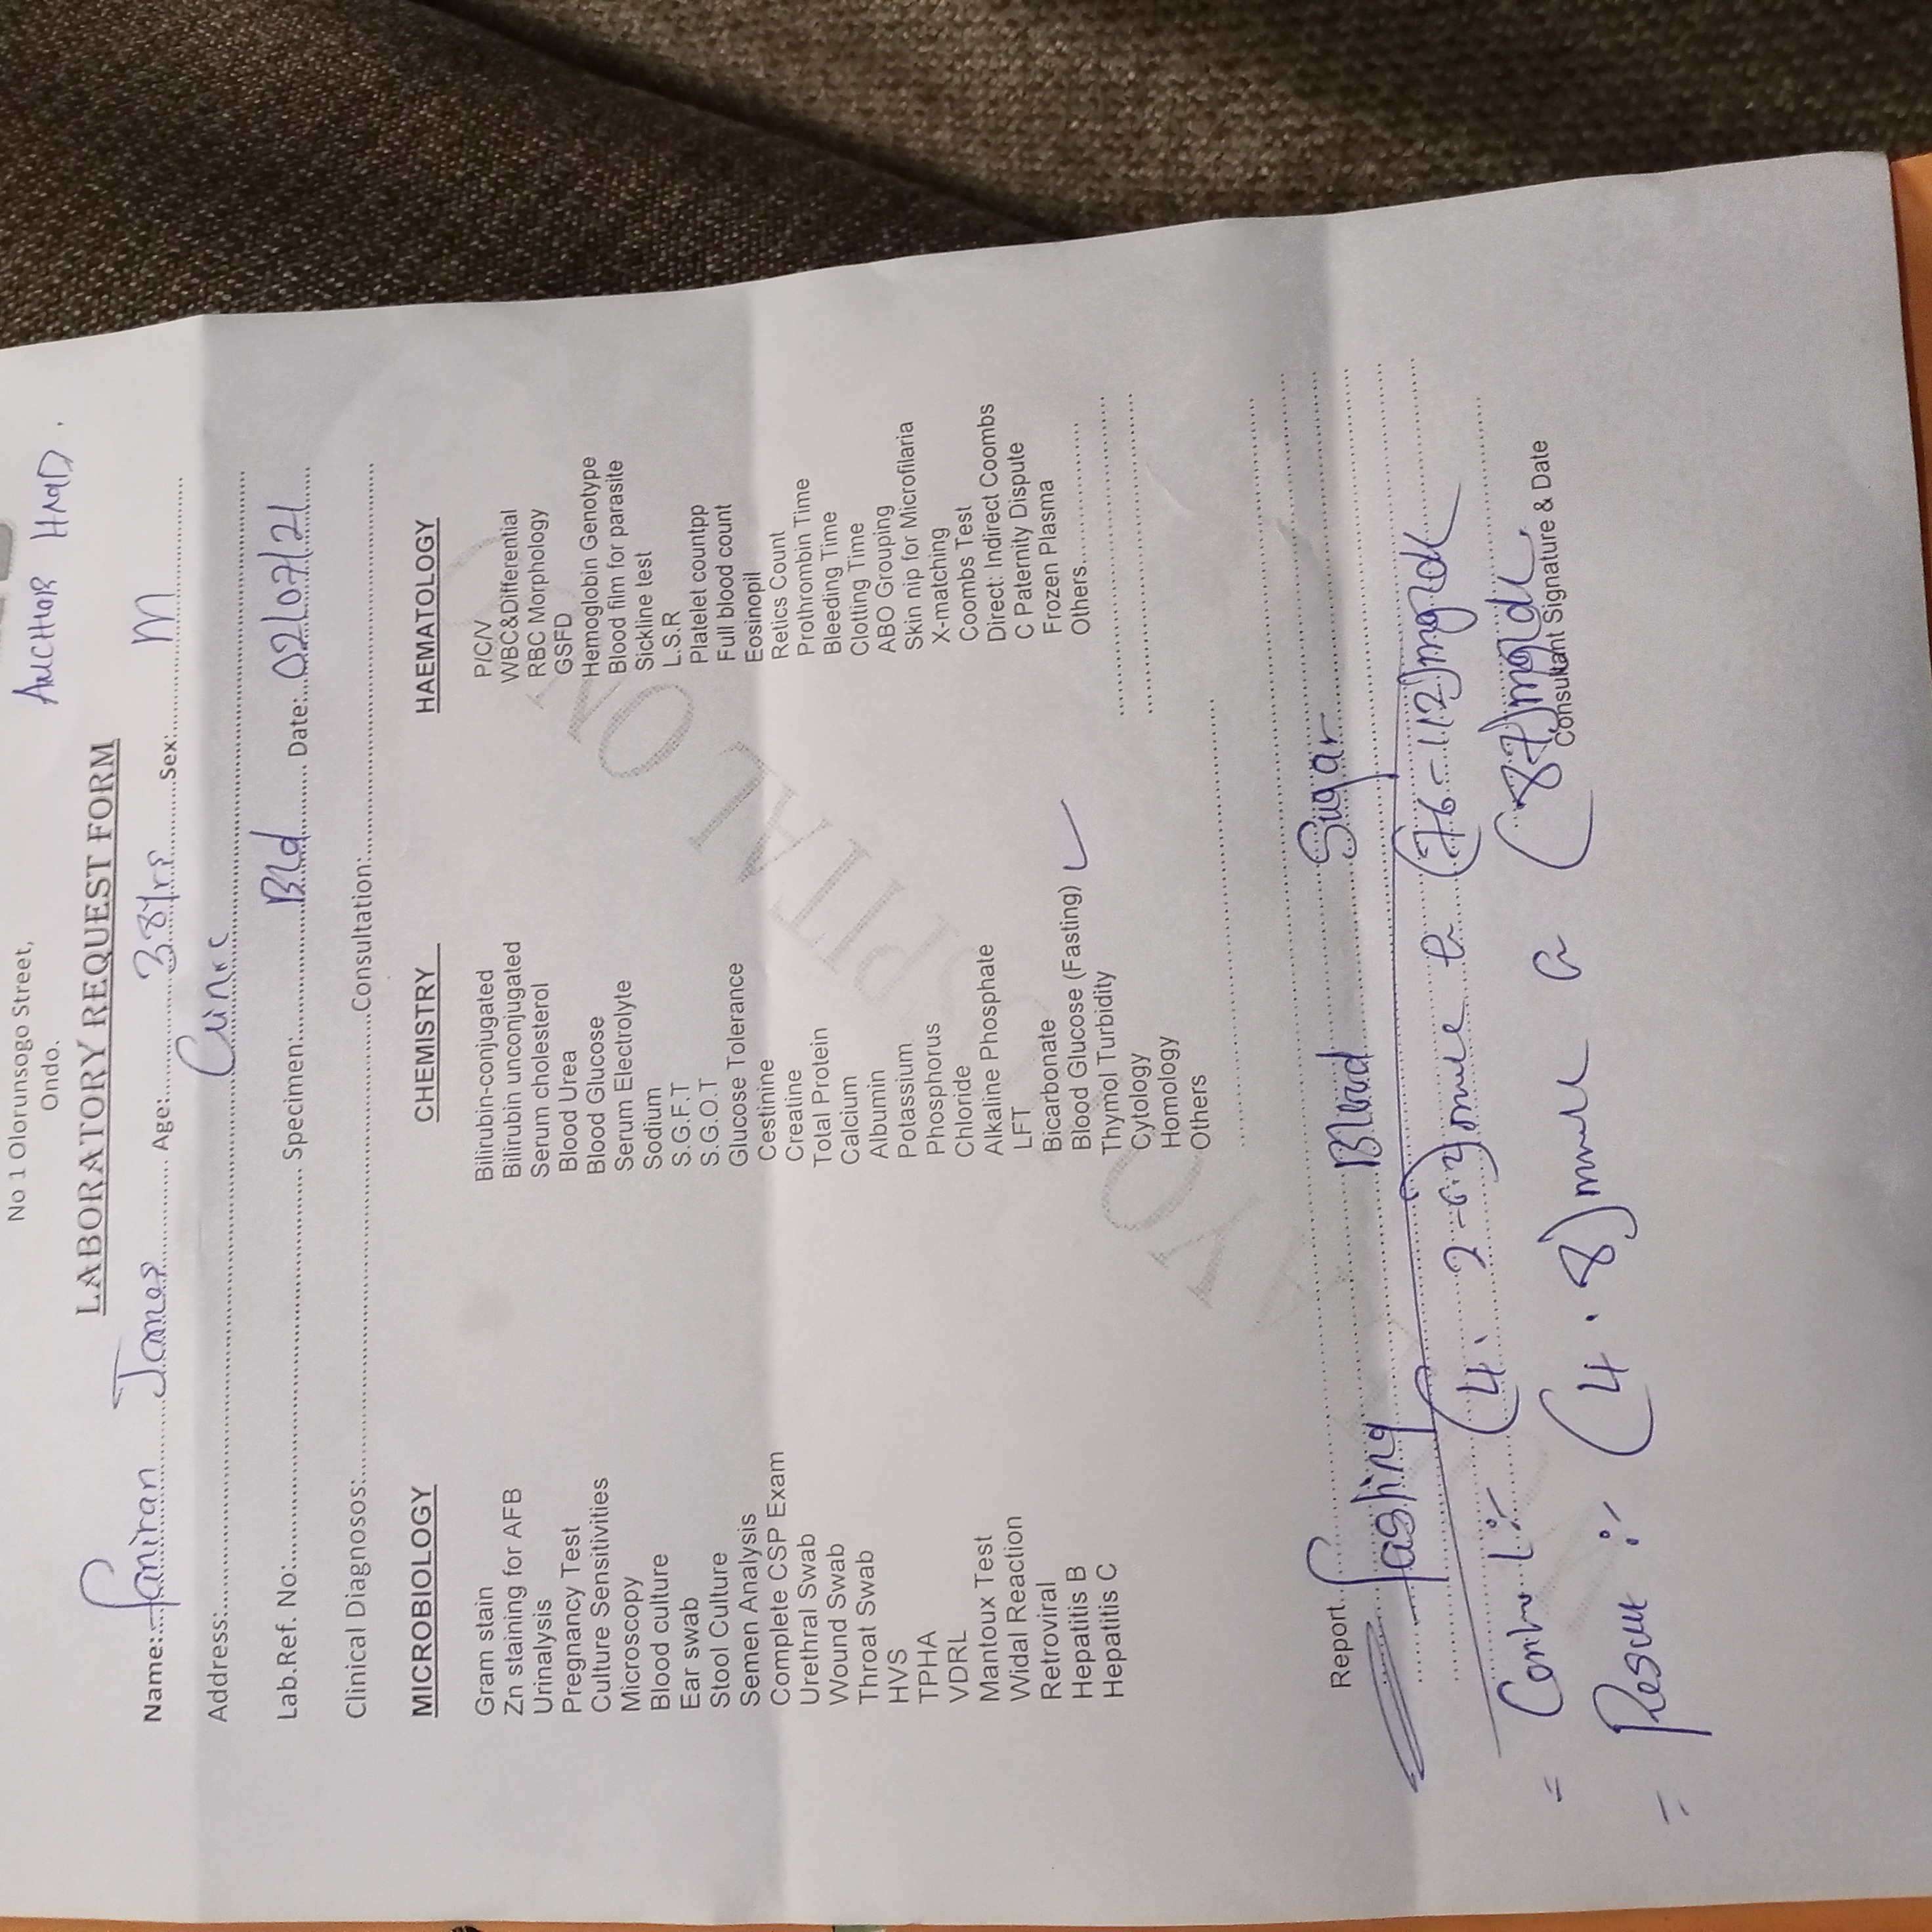 AUCHOR HAD.
No 1 Olorunsogo Street,
Ondo.
LABORATORY REQUEST FORM
Name: faniran James Age: 38yrs Sex: M
Address: Clinic
Lab.Ref. No: Specimen: Bld Date: 02/07/21
Clinical Diagnosos: Consultation:
MICROBIOLOGY
Gram stain
Zn staining for AFB
Urinalysis
Pregnancy Test
Culture Sensitivities
Microscopy
Blood culture
Ear swab
Stool Culture
Semen Analysis
Complete CSP Exam
Urethral Swab
Wound Swab
Throat Swab
HVS
TPHA
VDRL
Mantoux Test
Widal Reaction
Retroviral
Hepatitis B
Hepatitis C
CHEMISTRY
Bilirubin-conjugated
Bilirubin unconjugated
Serum cholesterol
Blood Urea
Blood Glucose
Serum Electrolyte
Sodium
S.G.F.T
S.G.O.T
Glucose Tolerance
Cestinine
Creatine
Total Protein
Calcium
Albumin
Potassium
Phosphorus
Chloride
Alkaline Phosphate
LFT
Bicarbonate
Blood Glucose (Fasting) ✓
Thymol Turbidity
Cytology
Homology
Others
HAEMATOLOGY
P/C/V
WBC&Differential
RBC Morphology
GSFD
Hemoglobin Genotype
Blood film for parasite
Sickline test
L.S.R
Platelet countpp
Full blood count
Eosinopil
Retics Count
Prothrombin Time
Bleeding Time
Clotting Time
ABO Grouping
Skin nip for Microfilaria
X-matching
Coombs Test
Direct: Indirect Coombs
C Paternity Dispute
Frozen Plasma
Others
Report
fashing Blood Sugar
= Control :- (4.2-6.2) (76-112) mgldl
= Result :- (4.8) (87) mgldl
Consultant Signature & Date